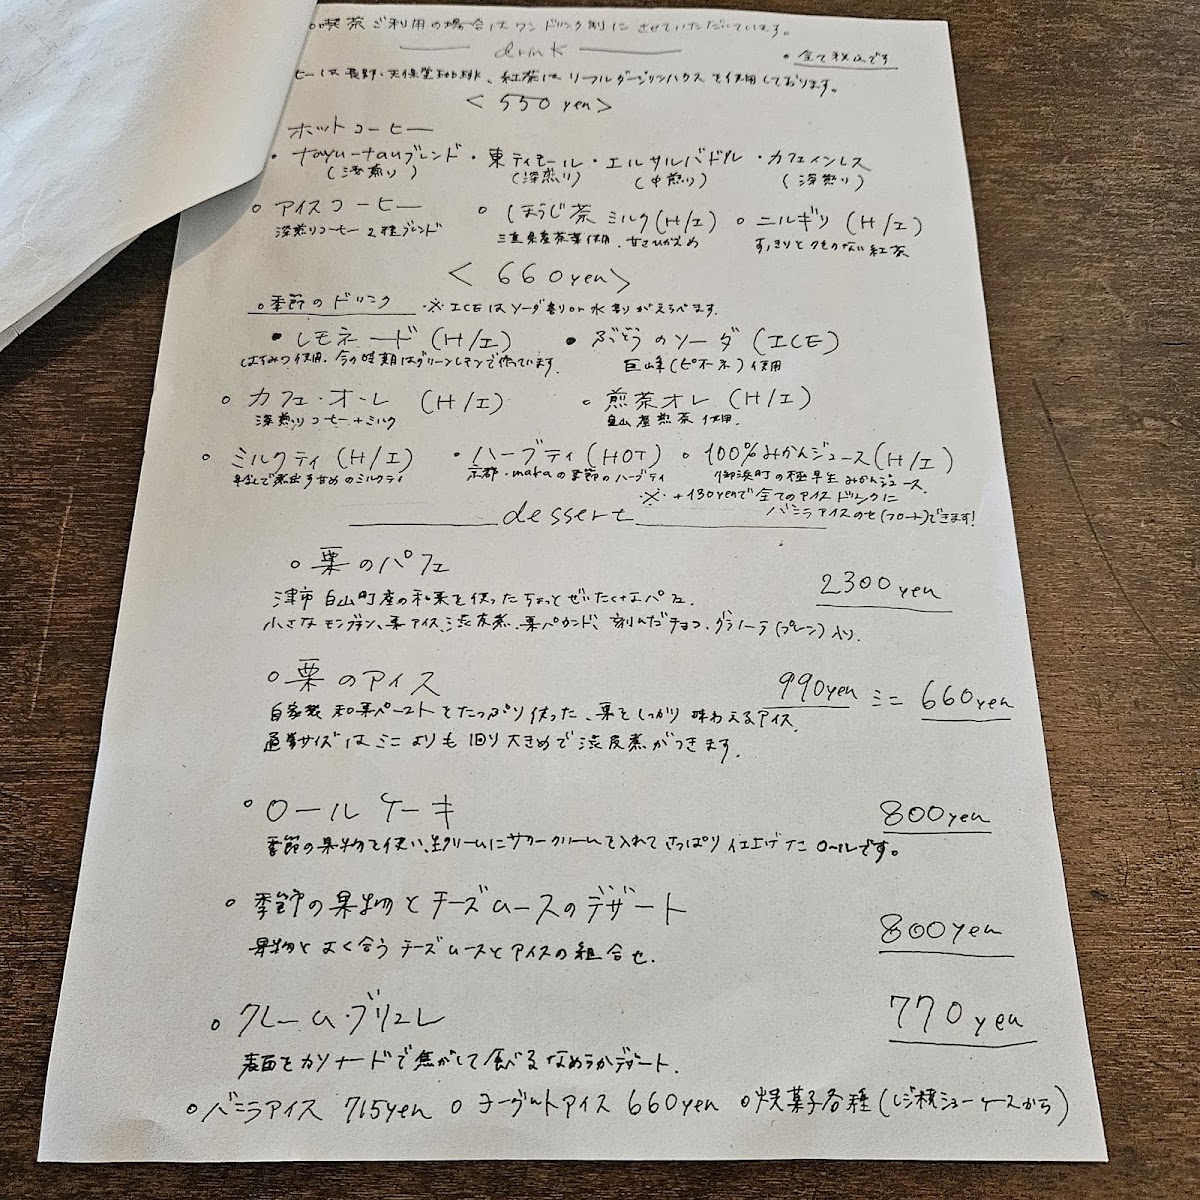 ○喫茶ご利用の場合はワンドリンク制にさせていただいています。
drink
○全て税込です
ヒーは長野・天保堂珈琲、紅茶はリーフルダージリンハウスを使用しております。
< 550 yen >
ホットコーヒー
・tayu-tauブレンド ・東ティモール ・エルサルバドル ・カフェインレス
(浅煎り) (深煎り) (中煎り) (深煎り)
○アイスコーヒー ○ほうじ茶ミルク(H/I) ○ニルギリ(H/I)
深煎りコーヒー2種ブレンド 三重県産茶葉使用、甘さひかえめ すっきりとクセのない紅茶
< 660yen >
○季節のドリンク ・※ICEはソーダ割りor水割りがえらべます。
・レモネード(H/I) ・ぶどうのソーダ(ICE)
はちみつ使用、今の時期はグリーンレモンで作っています。 巨峰(ピオーネ)使用
○カフェ・オ・レ (H/I) ○煎茶オレ(H/I)
深煎りコーヒー+ミルク 白山産煎茶使用。
○ミルクティ(H/I) ・ハーブティ(HOT) ○100%みかんジュース(H/I)
煮出す甘めのミルクティ 京都・makaの季節のハーブティ 御浜町の極早生みかんジュース
・※・+130yenで全てのアイスドリンクに
バニラアイスのせ(フロート)できます!
dessert
○栗のパフェ 2300yen
津市白山町産の和栗を使ったちょっとぜいたくなパフェ。
小さなモンブラン、栗アイス、渋皮煮、栗パウンド、刻んだチョコ、グラノーラ(プレーン)入り。
○栗のアイス 990yen ミニ 660yen
自家製和栗ペーストをたっぷり使った、栗をしっかり味わえるアイス。
通常サイズはミニよりも1回り大きめで渋皮煮がつきます。
○ロールケーキ 800yen
季節の果物を使い、生クリームにサワークリームを入れてさっぱり仕上げたロールです。
○季節の果物とチーズムースのデザート 800yen
果物とよく合うチーズムースとアイスの組合せ。
○クレーム・ブリュレ 770yen
表面をカソナードで焦がして食べるなめらかデザート。
○バニラアイス 715yen ○ヨーグルトアイス 660yen ○焼菓子各種(レジ横ショーケースから)